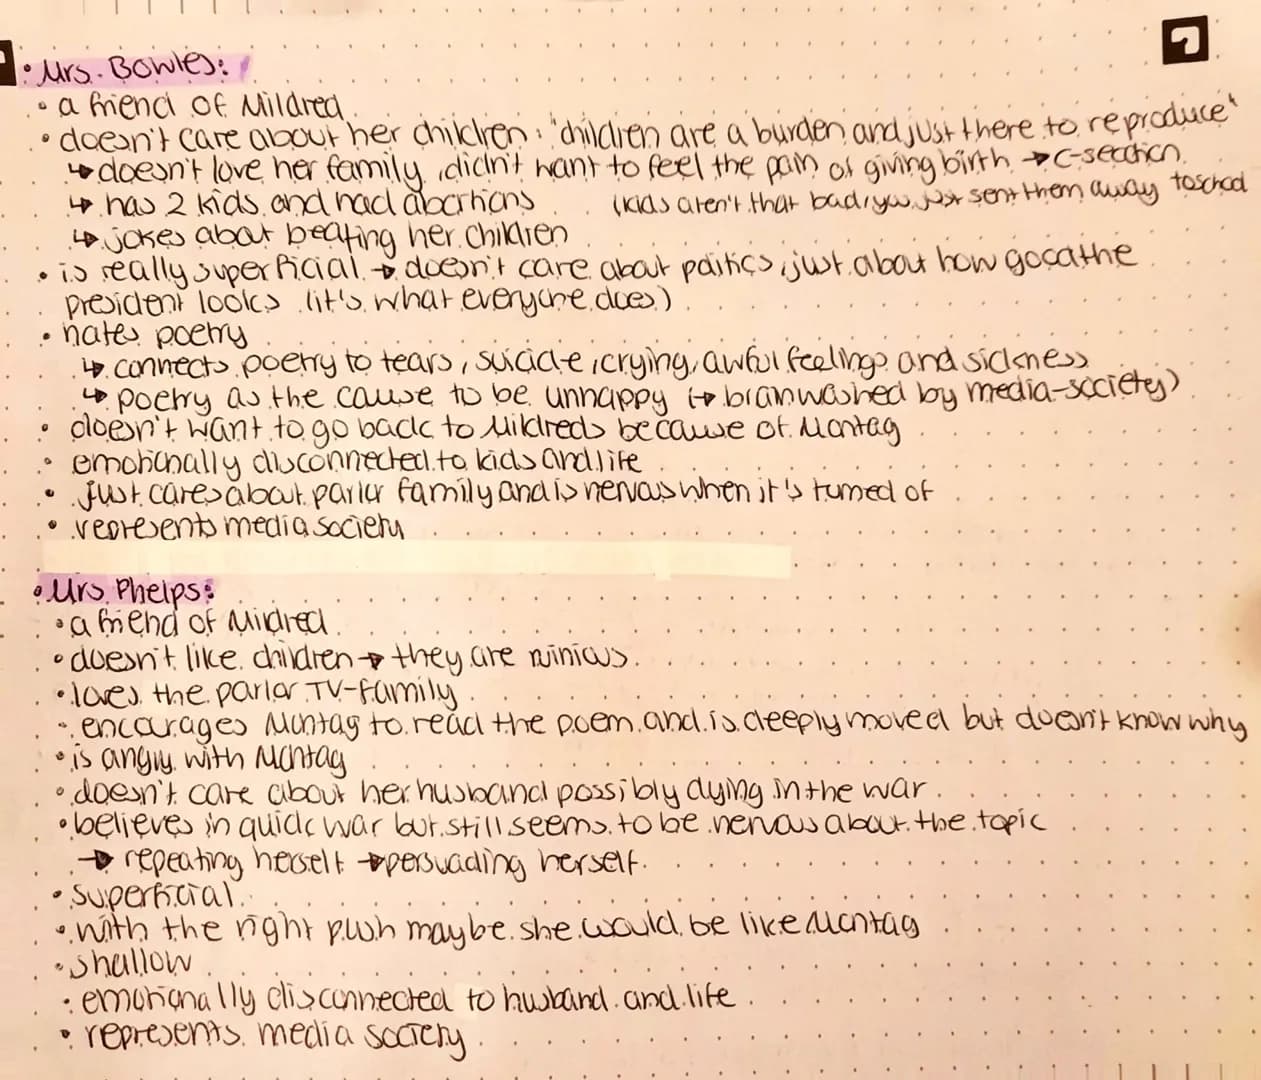 • Mrs. Bowles:
• a friend of Mildred
• doesn't care about her children: "children are a burden and just there to reproduce"
↳ doesn't love her family, didn't want to feel the pain of giving birth → C-section
↳ has 2 kids and had abortions (kids aren't that bad, you just sent them away to school
↳ jokes about beating her children
• is really superficial → doesn't care about politics, just about how good the
president looks (it's what everyone does)
• hates poetry
↳ connects poetry to tears, suicide, crying, awful feelings and sickness
↳ poetry as the cause to be unhappy (→ brainwashed by media-society)
• doesn't want to go back to Mildreds because of Montag
• emotionally disconnected to kids and life
• just cares about parlor family and is nervous when it's turned of
• represents media society
• Mrs. Phelps:
• a friend of Mildred
• doesn't like children → they are ruinious
• loves the parlor TV-family
• encourages Montag to read the poem and is deeply moved but doesn't know why
• is angry with Montag
• doesn't care about her husband possibly dying in the war
• believes in quick war but still seems to be nervous about the topic
→ repeating herself → persuading herself
• superficial
• with the right push maybe she would be like Montag
• shallow
• emotionally disconnected to husband and life
• represents media society